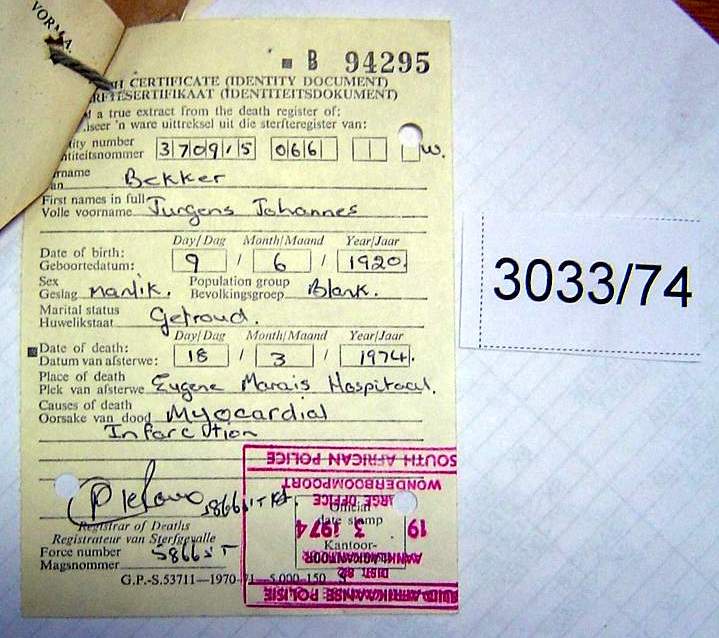 VORM A.
B 94295
CERTIFICATE (IDENTITY DOCUMENT)
(IDENTITEITSDOKUMENT)
a true extract from the death register of:
'n ware uittreksel uit die sterfteregister van:
number 370915 066 W.
Bekker
First names in full
Volle voorname Jurgens Johannes
Day/Dag Month/Maand Year/Jaar
Date of birth:
Geboortedatum: 9 / 6 / 1920
Sex Population group
Geslag manlik. Bevolkingsgroep Blank.
Marital status
Huwelikstaat Getroud.
Day/Dag Month/Maand Year/Jaar
Date of death:
Datum van afsterwe: 18 / 3 / 1974.
Place of death
Plek van afsterwe Eugene Marais Hospitaal.
Causes of death
Oorsake van dood Myocardial
Infarction
SOUTH AFRICAN POLICE
WONDERBOOMPOORT
CHARGE OFFICE
Official
date stamp
19 3 1974
Kantoor-
AANKLAGKANTOOR
SUID-AFRIKAANSE POLISIE
Registrar of Deaths
Registrateur van Sterfgevalle
Force number
Magsnommer 58665 T
G.P.-S.53711—1970-71—5,000-150 S
3033/74